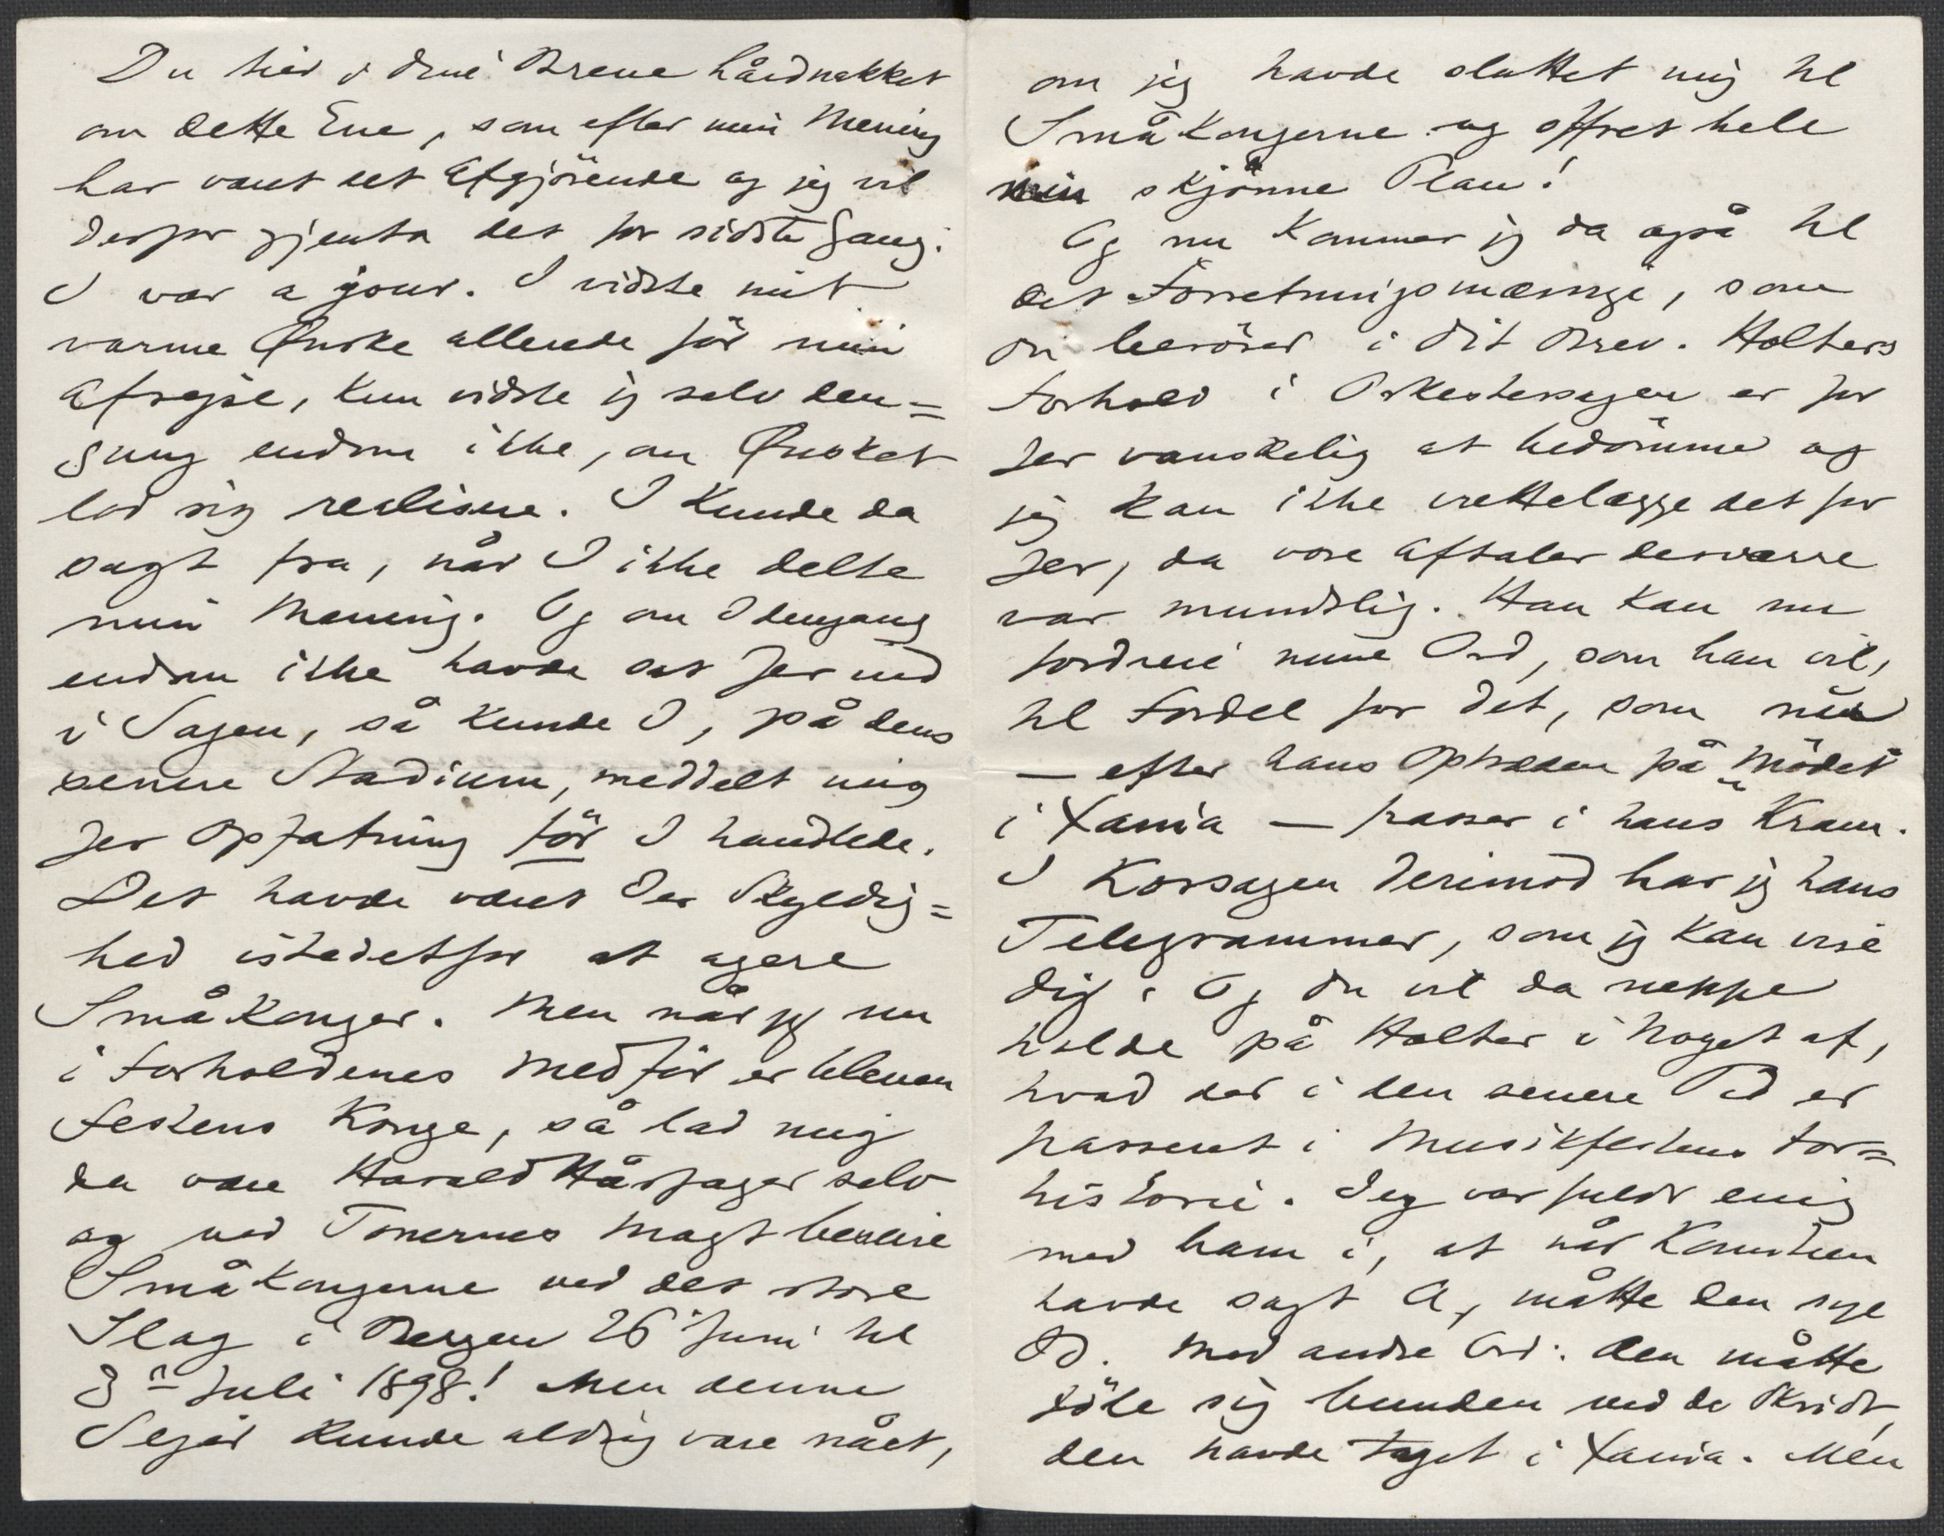 Du tier i dine Breve hårdnakket
om dette Ene, som efter min Mening
har været det Afgjörende og jeg vil
derfor gjenta det for sidste Gang.
I var a jour. I vidste mit
varme Ønske allerede för min
Afrejse, kun vidste jeg selv den=
gang endnu ikke, om Ønsket
lod sig realisere. I kunde da
sagt fra, når I ikke delte
min Mening. Og om I dengang
endnu ikke havde sat Jer ind
i Sagen, så kunde I, på dens
senere Stadium, meddelt mig
Jer Opfatning för I handlede.
Det havde været Jer Skyldig=
hed istedetfor at agere
Småkonger. Men når jeg nu
i Forholdenes Medför er bleven
Festens Konge, så lad mig
da være Harald Hårfager selv
og ved Tonernes Magt beseire
Småkongerne ved det store
Slag i Bergen 26 Juni til
3 Juli 1898! Men denne
Sejer kunde aldrig være nået,
om jeg havde sluttet mig til
Småkongerne og offret hele
min skjönne Plan!
Og nu kommer jeg da også til
det Forretningsmæssige, som
du berörer i dit Brev. Holters
Forhold i Orkestersagen er for
Jer vanskelig at bedömme og
jeg kan ikke rettelægge det for
Jer, da vore Aftaler desværre
var mundtlig. Han kan nu
fordreie mine Ord, som han vil,
til Fordel for det, som nu
— efter hans Optræden på Mödet
i Xania — passer i hans Kram.
I Korsagen derimod har jeg hans
Telegrammer, som jeg kan vise
dig. Og du vil da neppe
holde på Holter i Noget af,
hvad der i den senere Tid er
passeret i Musikfestens For=
historie. Jeg var fuldt enig
med ham i, at når Komiteen
havde sagt A, måtte den sige
B. Med andre Ord: den måtte
föle sig bunden ved de Skridt,
den havde taget i Xania. Men